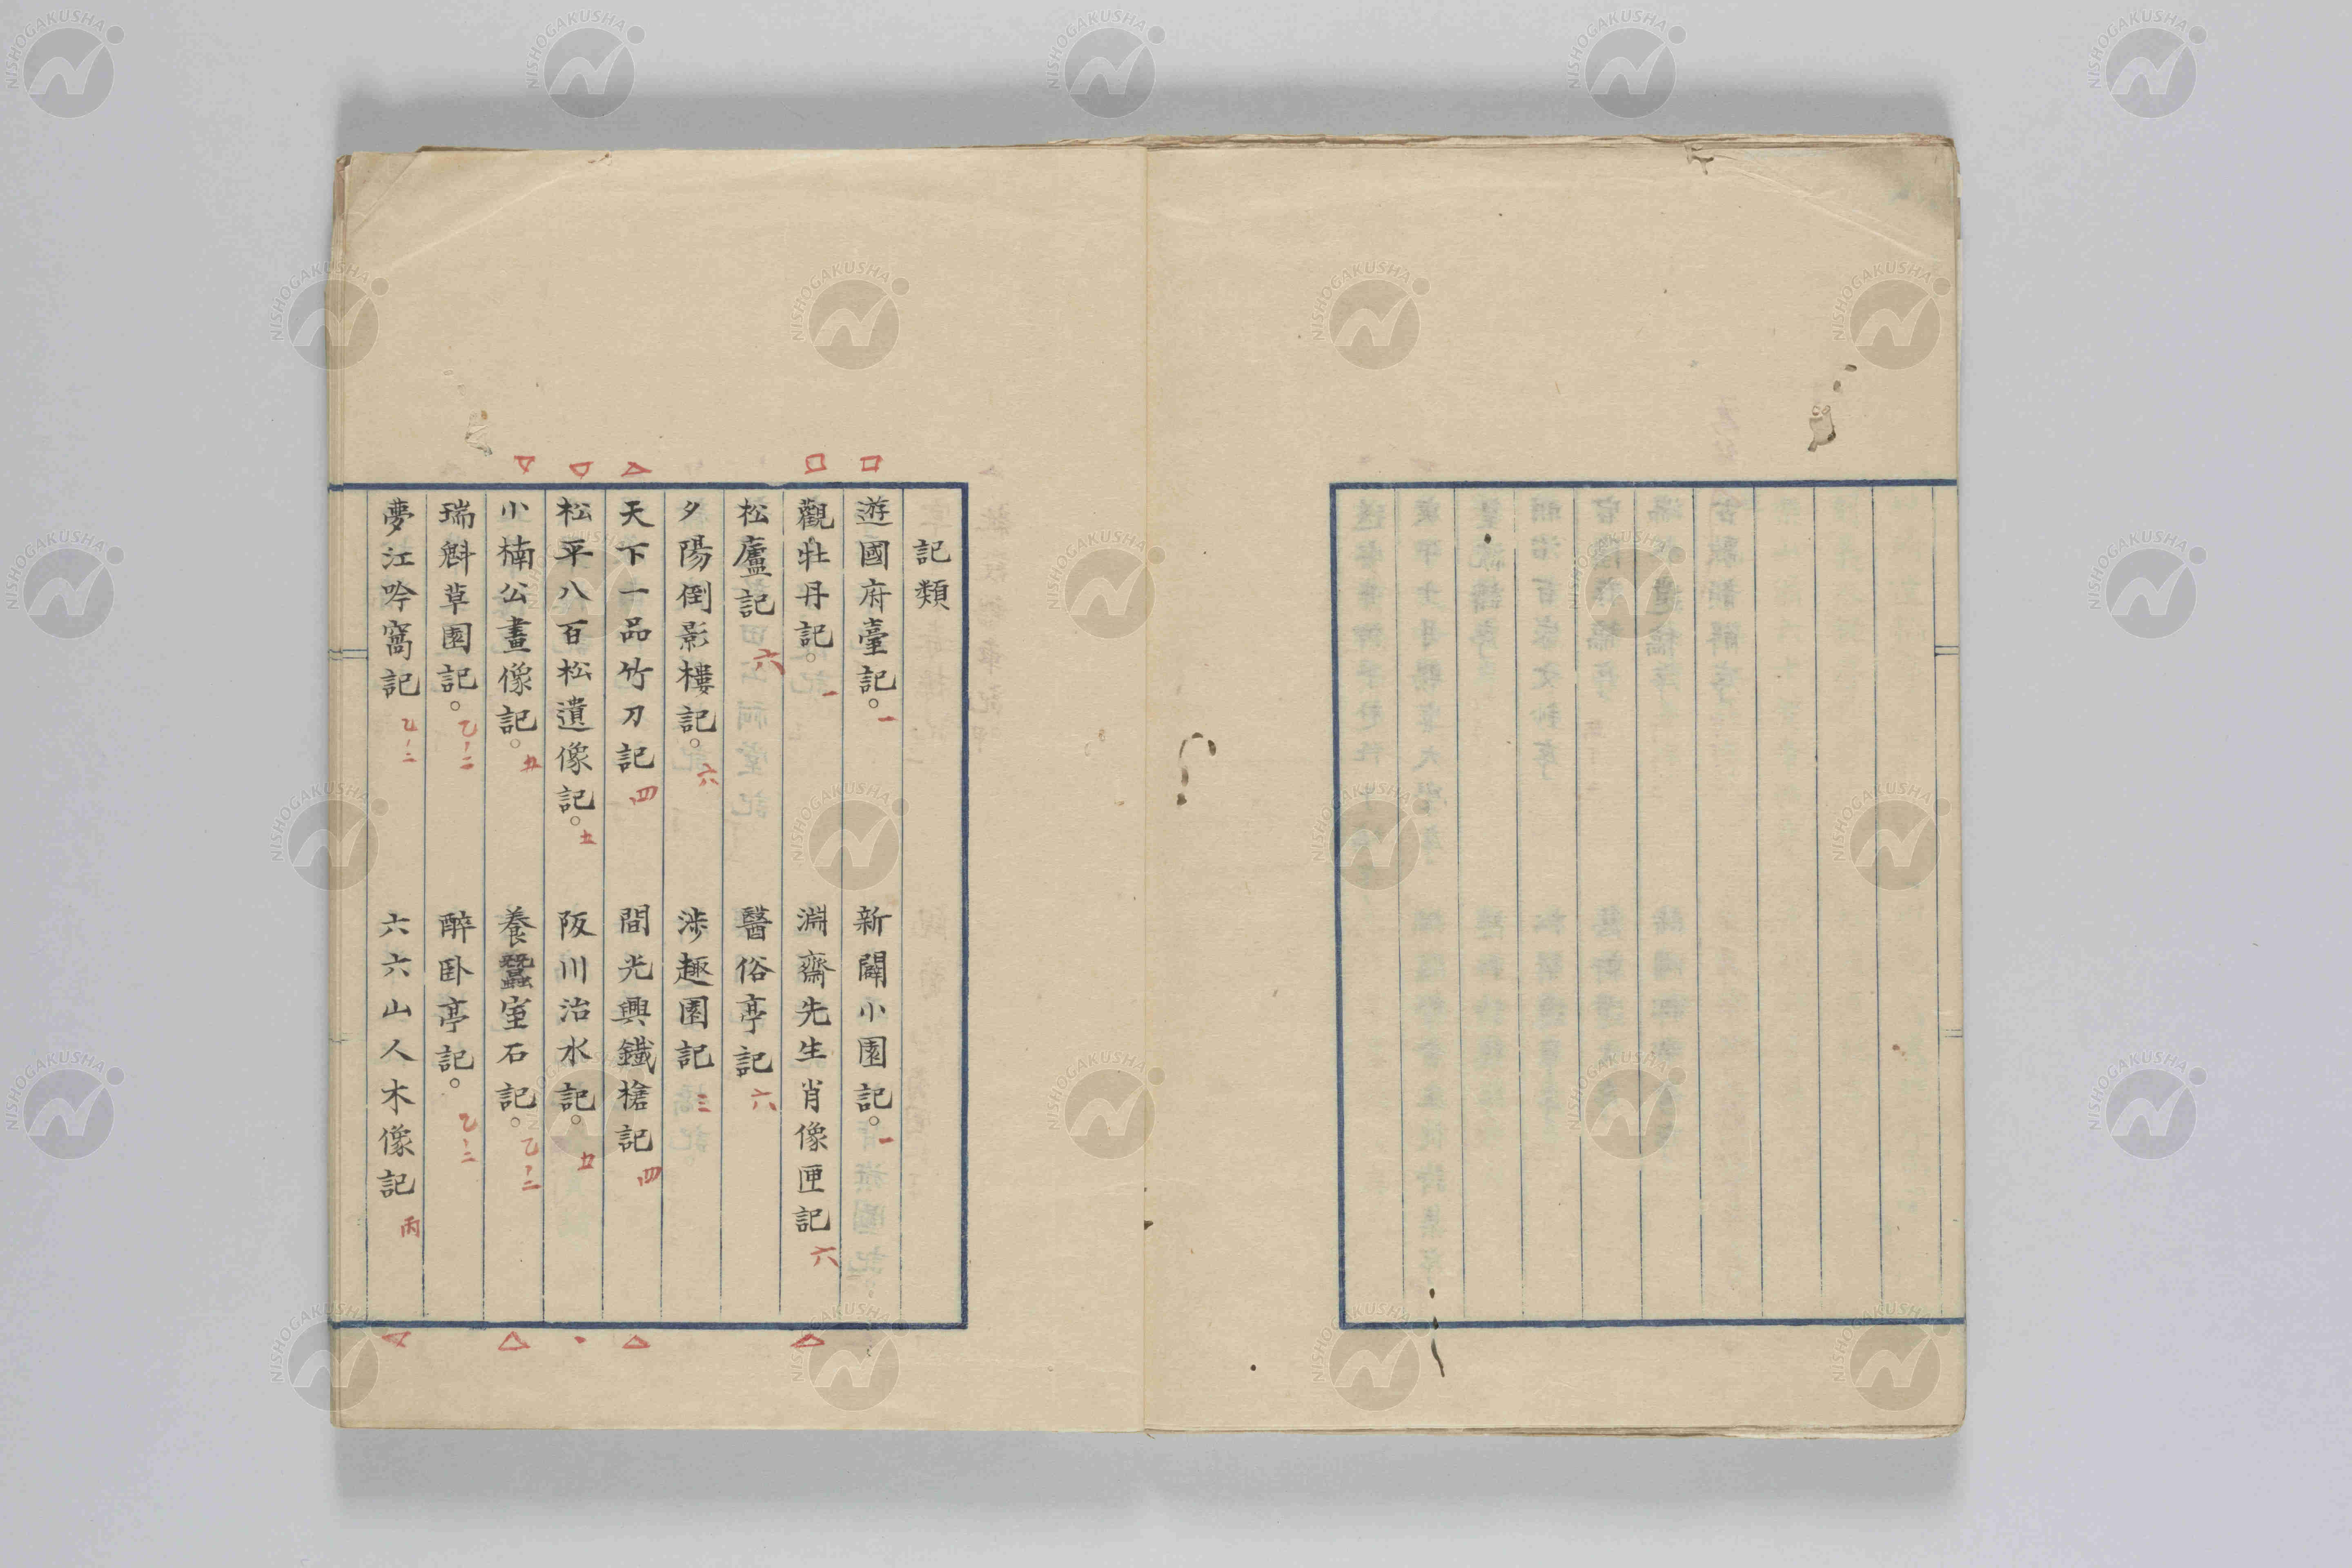 記類
遊國府臺記。一　新闢小園記。一
觀牡丹記。一　淵齋先生肖像匣記　六
松廬記　六　醫俗亭記　六
夕陽倒影樓記。六　涉趣園記　三
天下一品竹刀記　四　間光興鐵槍記　四
松平八百松遺像記。五　阪川治水記。五
小楠公畫像記。五　養蠶室石記。乙ノ二
瑞𣁬草園記。乙ノ二　醉臥亭記。乙ノ二
夢江吟窩記　乙ノ二　六六山人木像記　丙
NISHOGAKUSHA